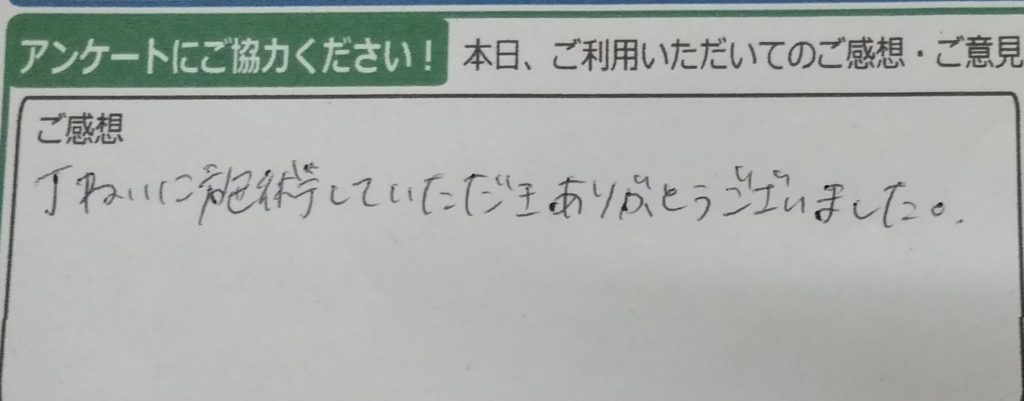 アンケートにご協力ください！ 本日、ご利用いただいてのご感想・ご意見
ご感想
丁ねいに施術していただきありがとうございました。